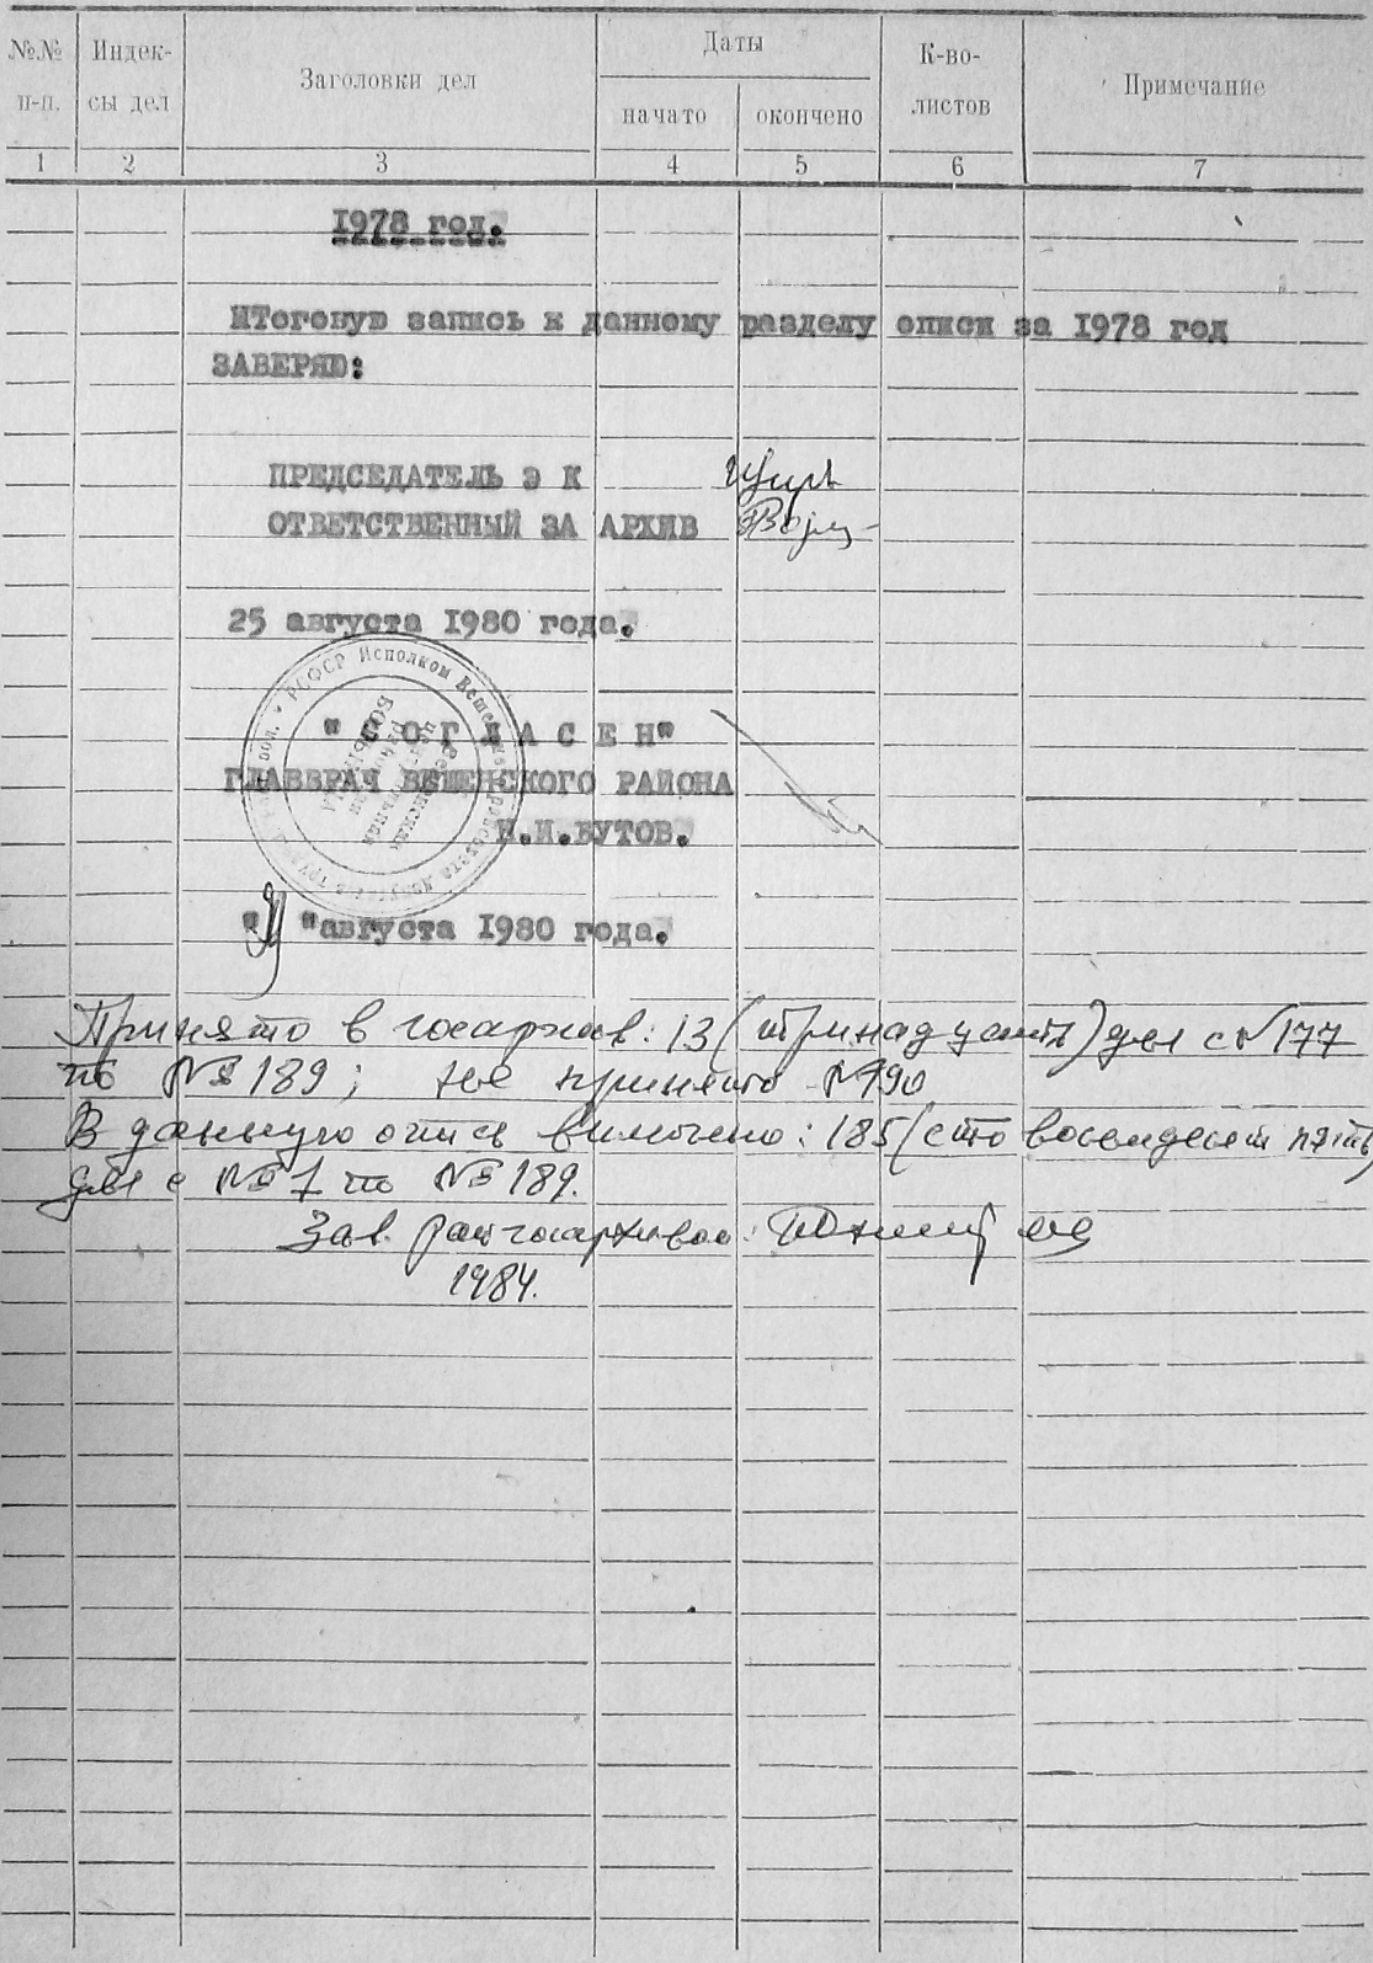 №№ п-п.
Индек-
сы дел
Заголовки дел
Даты
начато
окончено
К-во-
листов
Примечание
1 2 3 4 5 6 7
1978 год.
ИТоговую запись к данному разделу описи за 1978 год
ЗАВЕРЯЮ:
ПРЕДСЕДАТЕЛЬ Э К
ОТВЕТСТВЕННЫЙ ЗА АРХИВ
25 августа 1980 года.
РСФСР Исполком
"С О Г Л А С Е Н"
ГЛАВВРАЧ ВЕШЕНСКОГО РАЙОНА
БУТОВ.
" "августа 1980 года.
Принято в госархив: 13 (тринадцать) дел с № 177
по №189; не принято №190
В данную опись включено: 185 (сто восемдесят пять)
дел с № 1 по № 189.
Зав. райгосархивом
1984.